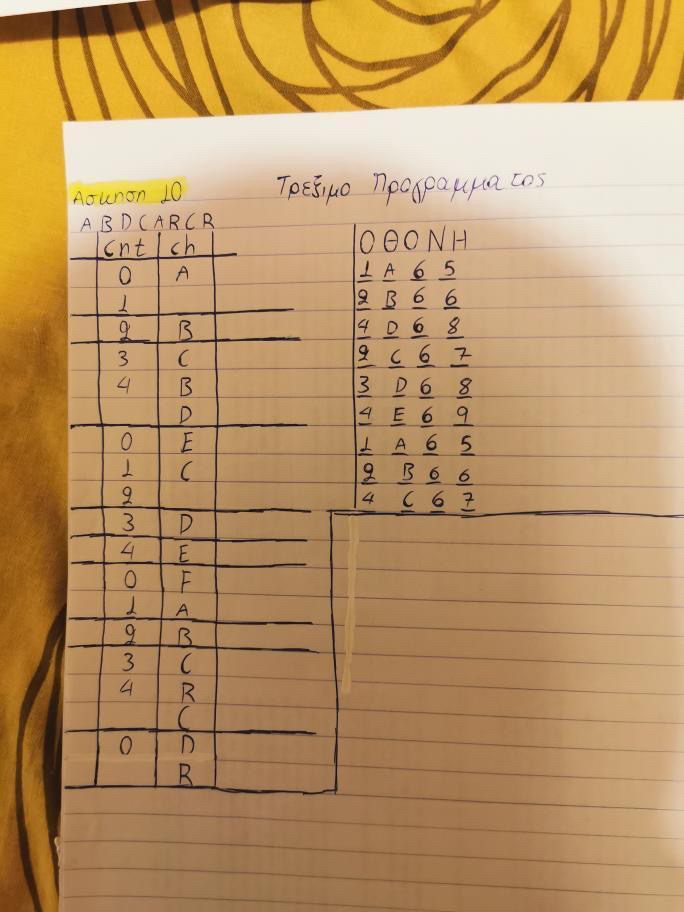 Άσκηση 10
Τρέξιμο Προγράμματος
A B D C A R C R
Cnt ch
0 A
1
2 B
3 C
4 B
D
0 E
1 C
2
3 D
4 E
0 F
1 A
2 B
3 C
4 R
C
0 D
R
ΟΘΟΝΗ
1 A 6 5
2 B 6 6
4 D 6 8
2 C 6 7
3 D 6 8
4 E 6 9
1 A 6 5
2 B 6 6
4 C 6 7